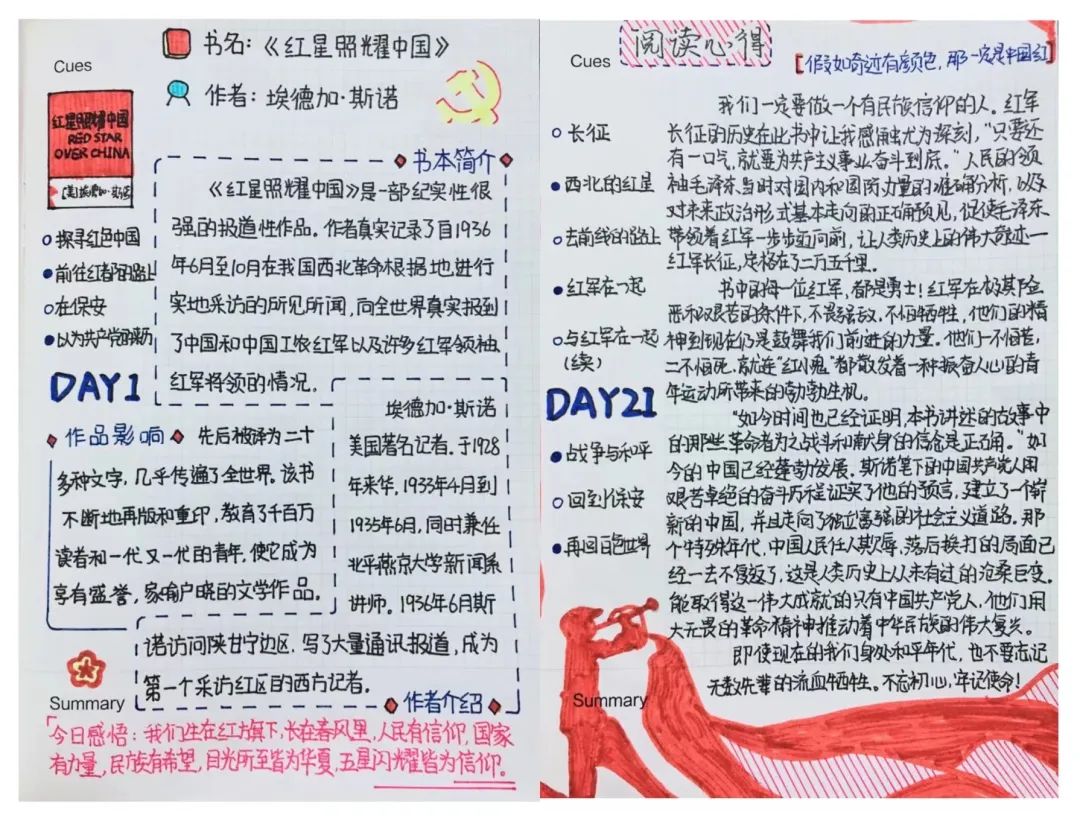 Cues
书名：《红星照耀中国》
作者：埃德加·斯诺
红星照耀中国
RED STAR
OVER CHINA
书本简介
《红星照耀中国》是一部纪实性很
强的报道性作品。作者真实记录了自1936
年6月至10月在我国西北革命根据地进行
实地采访的所见所闻，向全世界真实报到
了中国和中国工农红军以及许多红军领袖、
红军将领的情况。
探寻红色中国
前往红都的路上
在保安
以为共产党的来历
DAY1
作品影响
先后被译为二十
多种文字，几乎传遍了全世界。该书
不断地再版和重印，教育了千百万
读者和一代又一代的青年，使它成为
享有盛誉，家喻户晓的文学作品。
埃德加·斯诺
美国著名记者。于1928
年来华。1933年4月到
1935年6月，同时兼任
北平燕京大学新闻系
讲师。1936年6月斯
诺访问陕甘宁边区，写了大量通讯报道，成为
第一个采访红区的西方记者。
作者介绍
Summary
「今日感悟：我们生在红旗下，长在春风里，人民有信仰，国家
有力量，民族有希望，目光所至皆为华夏，五星闪耀皆为信仰。
Cues
阅读心得
[假如奇迹有颜色，那一定是中国红]
我们一定要做一个有民族信仰的人。红军
长征的历史在此书中让我感触尤为深刻，“只要还
有一口气，就要为共产主义事业奋斗到底。”人民的领
袖毛泽东当时对国内和国际力量的准确分析，以及
对未来政治形式基本走向的正确预见，促使毛泽东
带领着红军一步步迈向前，让人类历史上的伟大奇迹—
红军长征，定格在了二万五千里。
书中的每一位红军，都是勇士！红军在极其险
恶和艰苦的条件下，不畏强敌，不怕牺牲，他们的精
神到现在仍是鼓舞我们前进的力量。他们一不怕苦，
二不怕死，就连“红小鬼”都散发着一种振奋人心的青
年运动所带来的勃勃生机。
“如今时间也已经证明，本书讲述的故事中
的那些革命者为之战斗和献身的信念是正确。”如
今的中国已经蓬勃发展。斯诺笔下的中国共产党人用
艰苦卓绝的奋斗历程证实了他的预言，建立了一个崭
新的中国，并且走向了独立富强的社会主义道路。那
个特殊年代，中国人民任人欺辱，落后挨打的局面已
经一去不复返了，这是人类历史上从未有过的沧桑巨变。
能取得这一伟大成就的只有中国共产党人，他们用
大无畏的革命精神推动着中华民族的伟大复兴。
即使现在的我们身处和平年代，也不要忘记
无数先辈的流血牺牲。不忘初心，牢记使命！
长征
西北的红星
去前线的路上
红军在一起
与红军在一起
（续）
DAY21
战争与和平
回到保安
再回白色世界
Summary